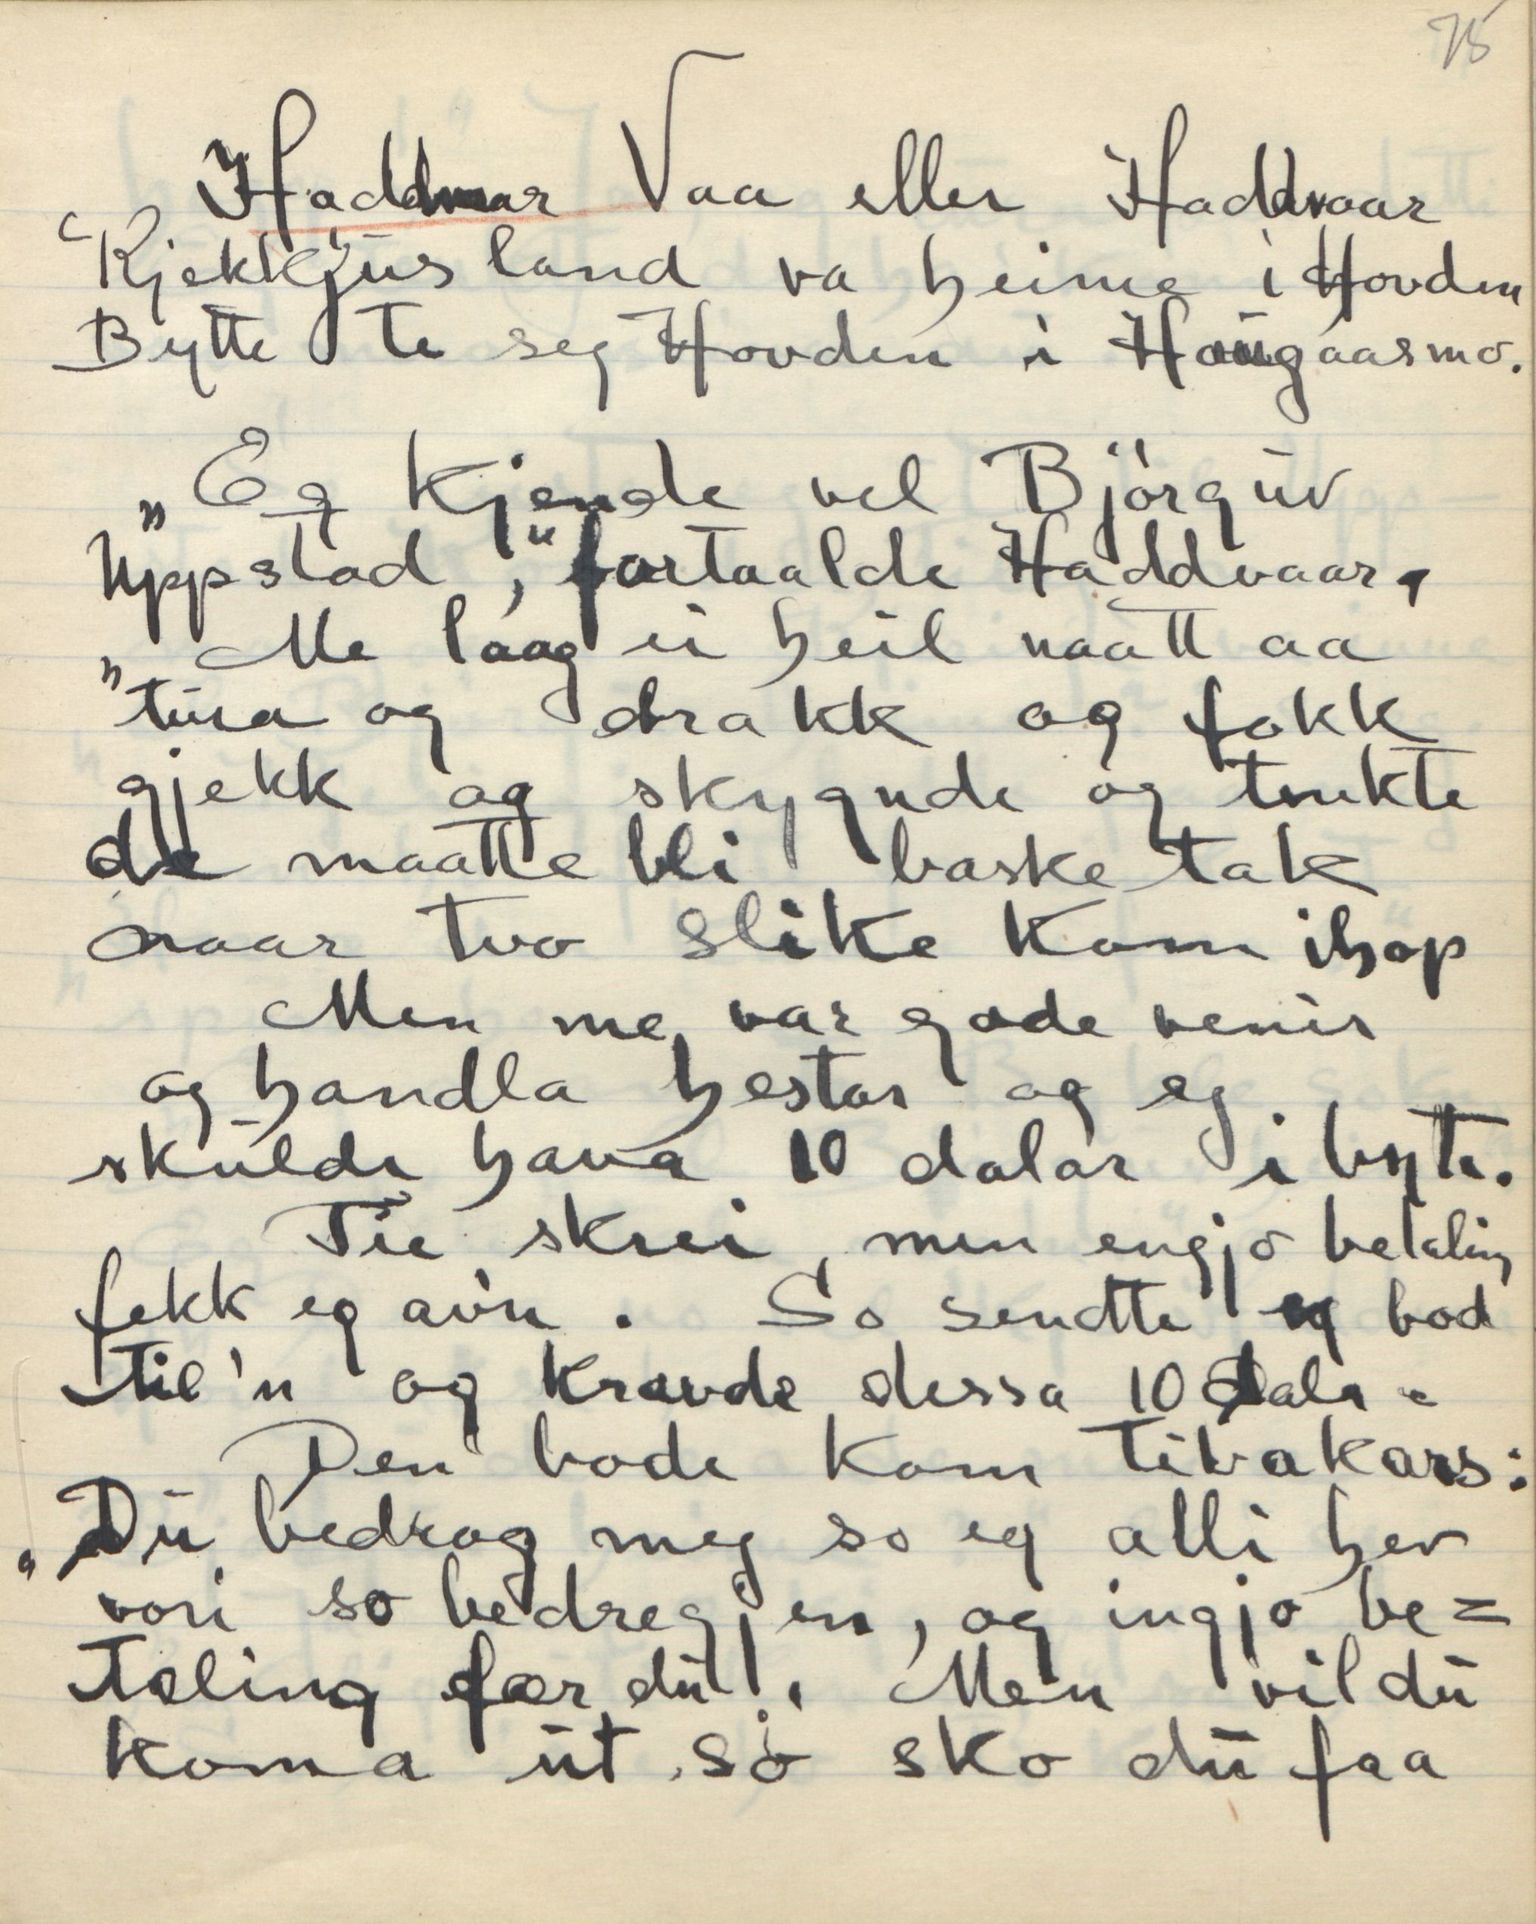 75
Haddvar Vaa eller Haddvaar
Kjekkjusland va heime i Hovden
Bytte te seg Hovden i Haugaasmo.
„Eg kjende vel Björguv
Uppstad," fortaalde Haddvaar.
„Me laag ei heil naatt aa
tura og drakk og fokk
gjekk og skygnde og trukte
de maatte bli basketak
naar tvo slike kom ihop
Men me var gode venir
og handla hestar og eg
skulde hava 10 dalar i byte.
Tie skrei, men engjo betaling
fekk eg av'n. So sendte eg bod
til'n og kravde dessa 10 dalr.
Den bode kom tebakars:
„Du bedrog meg so eg alli hev
vori so bedregjen, og ingjo be=
taling fær du!. Men vil du
koma ut so sko du faa